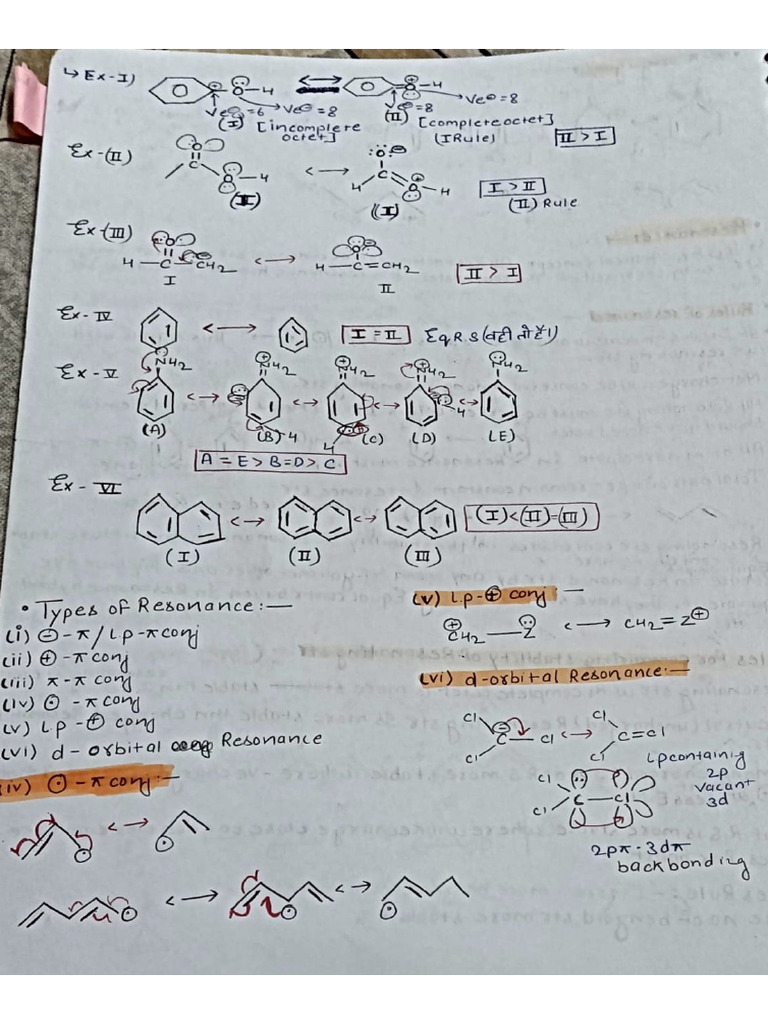 ↳ Ex-I) ⊕ Ö-H ⟷ Ö-H
Ve⊖=6 Ve⊖=8 Ve⊖=8 Ve⊖=8
(I) [incomplere octet] (II) [complete octet] (I Rule) II > I
Ex-(II) O C O-H ⟷ :Ö:⊖ C H O-H
(II) (I) I > II
(II) Rule
Ex-(III) H-C-CH2 ⟷ H-C=CH2 II > I
I II
Ex-IV ⟷ I = II Eq R.S (वही तो है।)
Ex-V NH2 ⟷ NH2 ⟷ NH2 ⟷ NH2 ⟷ NH2
(A) (B) H (C) H (D) H (E)
A = E > B = D > C
Ex-VI ⟷ ⟷ (I) < (II) = (III)
(I) (II) (III)
• Types of Resonance:—
(i) ⊖-π/lp-π conj
(ii) ⊕-π conj
(iii) π-π conj
(iv) ⊙-π conj
(v) lp-⊕ conj
(vi) d-orbital Resonance
(iv) ⊙-π conj:-
⟷
⟷ ⟷
(v) l.p-⊕ conj :—
⊕CH2—Z̈ ⟷ CH2=Z⊕
(vi) d-orbital Resonance:—
Cl Cl C⊖-Cl ⟷ Cl Cl C=Cl
lp containig
2p
vacant
3d
Cl Cl C—Cl
2pπ-3dπ
backbonding